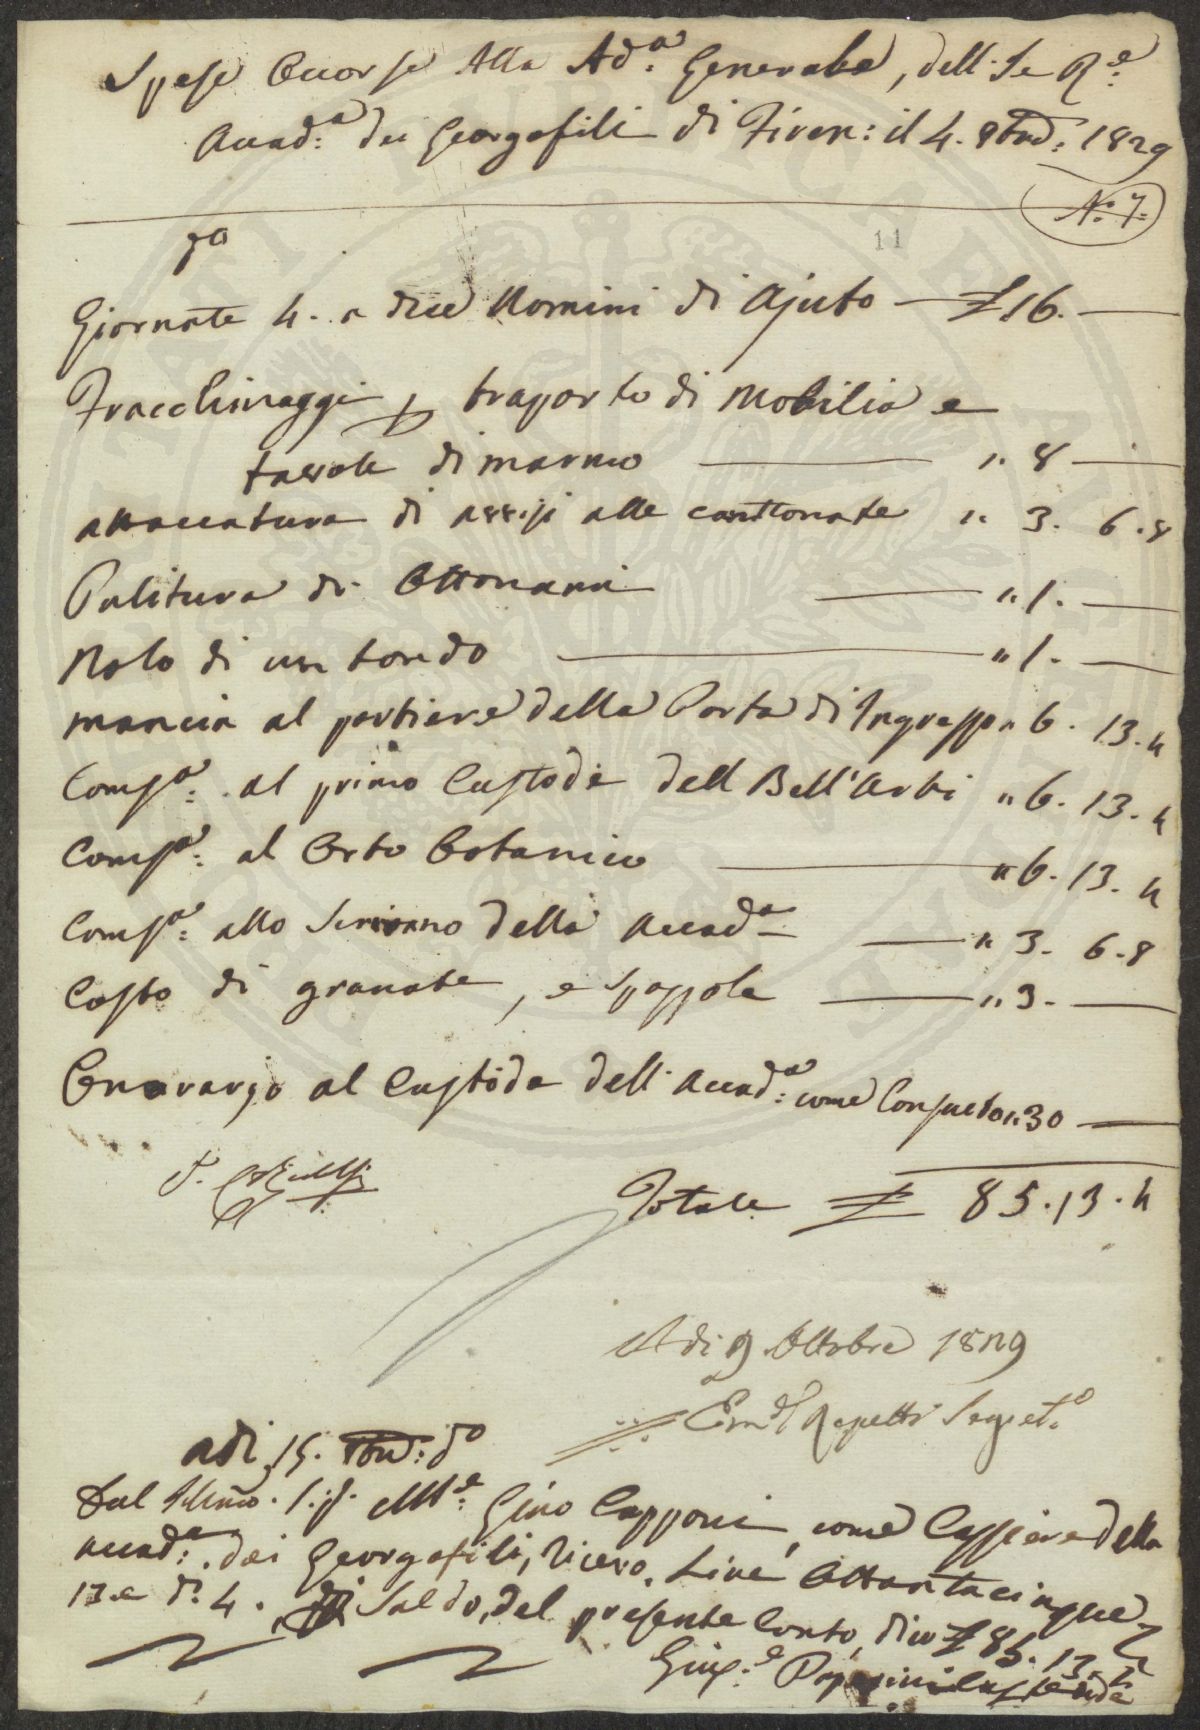 Spese Occorse Alla Ad.a Generale, dell. Re.
Accad.a dei Georgofili di Firen: il 4. 8bre: 1829
N.° 7.
11
Giornate 4. a dieci Uomini di Ajuto — £ 16. —
Fracchinaggi p traporto di Mobilia e
tavole di marmo — ,, 8 —
attaccatura di assisi alle canttonate ,, 3. 6.8
Pulitura di Ottonami — ,, 1. —
Nolo di un tondo — ,, 1. —
mancia al portiere della Porta di Ingresso ,, 6. 13.4
Comp.a: al primo Custode dell Bell'arti ,, 6. 13.4
Comp.a: al Orto Botanico — ,, 6. 13.4
Comp.a: allo Scrivano della Accad.a — ,, 3. 6.8
Costo di granate, e Spazzole — ,, 3. —
Onorargo al Custode dell. Accad.a: come Consueto ,, 30 —
Totale £ 85.13.4
A di 9 Ottobre 1829
Repetti Segret.o
adi 15. 8bre: do
Dal Gino Capponi, come Cassiere della
Accad.a: dei Georgofili, Ricevo, Lire Ottantacinque
13 e di 4. Saldo, del presente Conto, dico £ 85. 13. 4
Gius.e Papini Custode